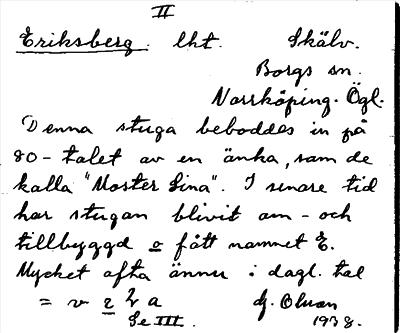 II
Eriksberg. lht. Skälv.
Borgs sn.
Norrköping. Ögl.
Denna stuga beboddes in på
80-talet av en änka, som de
kalla "Moster Lina". I senare tid
har stugan blivit om- och
tillbyggd o fått namnet E.
Mycket ofta ännu i dagl. tal
= v
Se III.
1938.